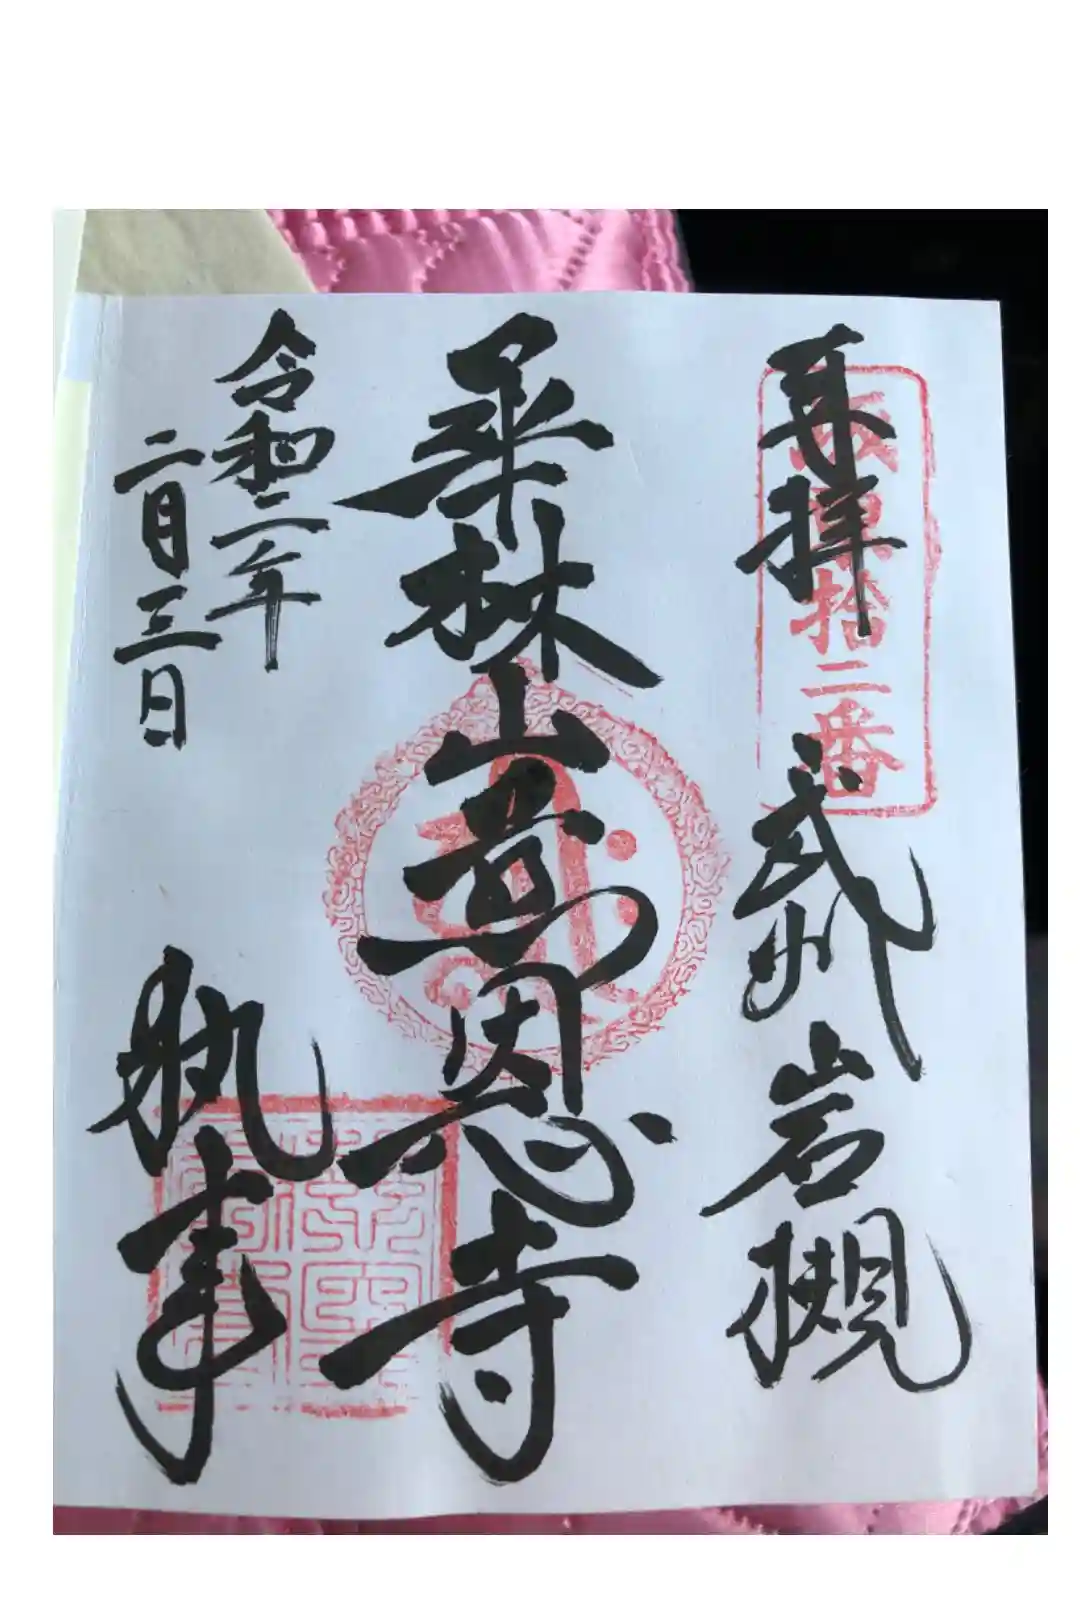 奉拝
坂東拾二番
武州岩槻
華林山慈恩寺
令和二年
二月三日
執事